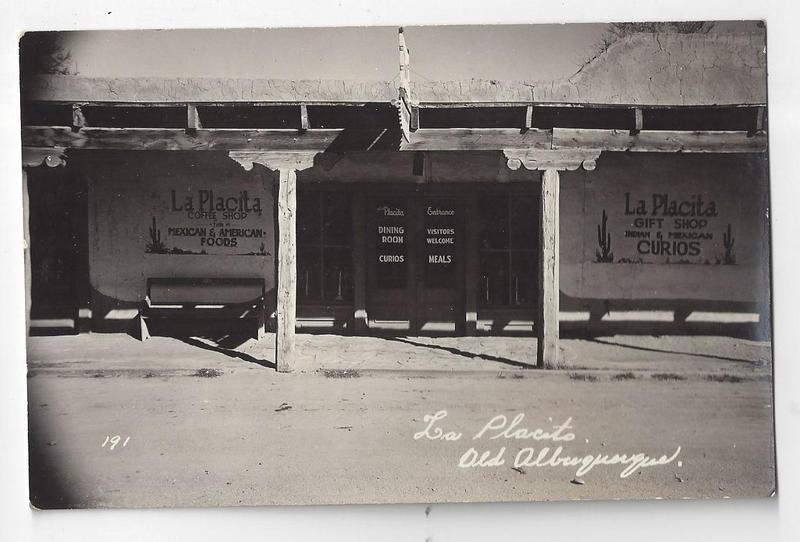 La Placita
COFFEE SHOP
MEXICAN & AMERICAN
FOODS
Placita
DINING
ROOM
CURIOS
Entrance
VISITORS
WELCOME
MEALS
La Placita
GIFT SHOP
INDIAN & MEXICAN
CURIOS
191
La Placito.
Old Albuquerque.